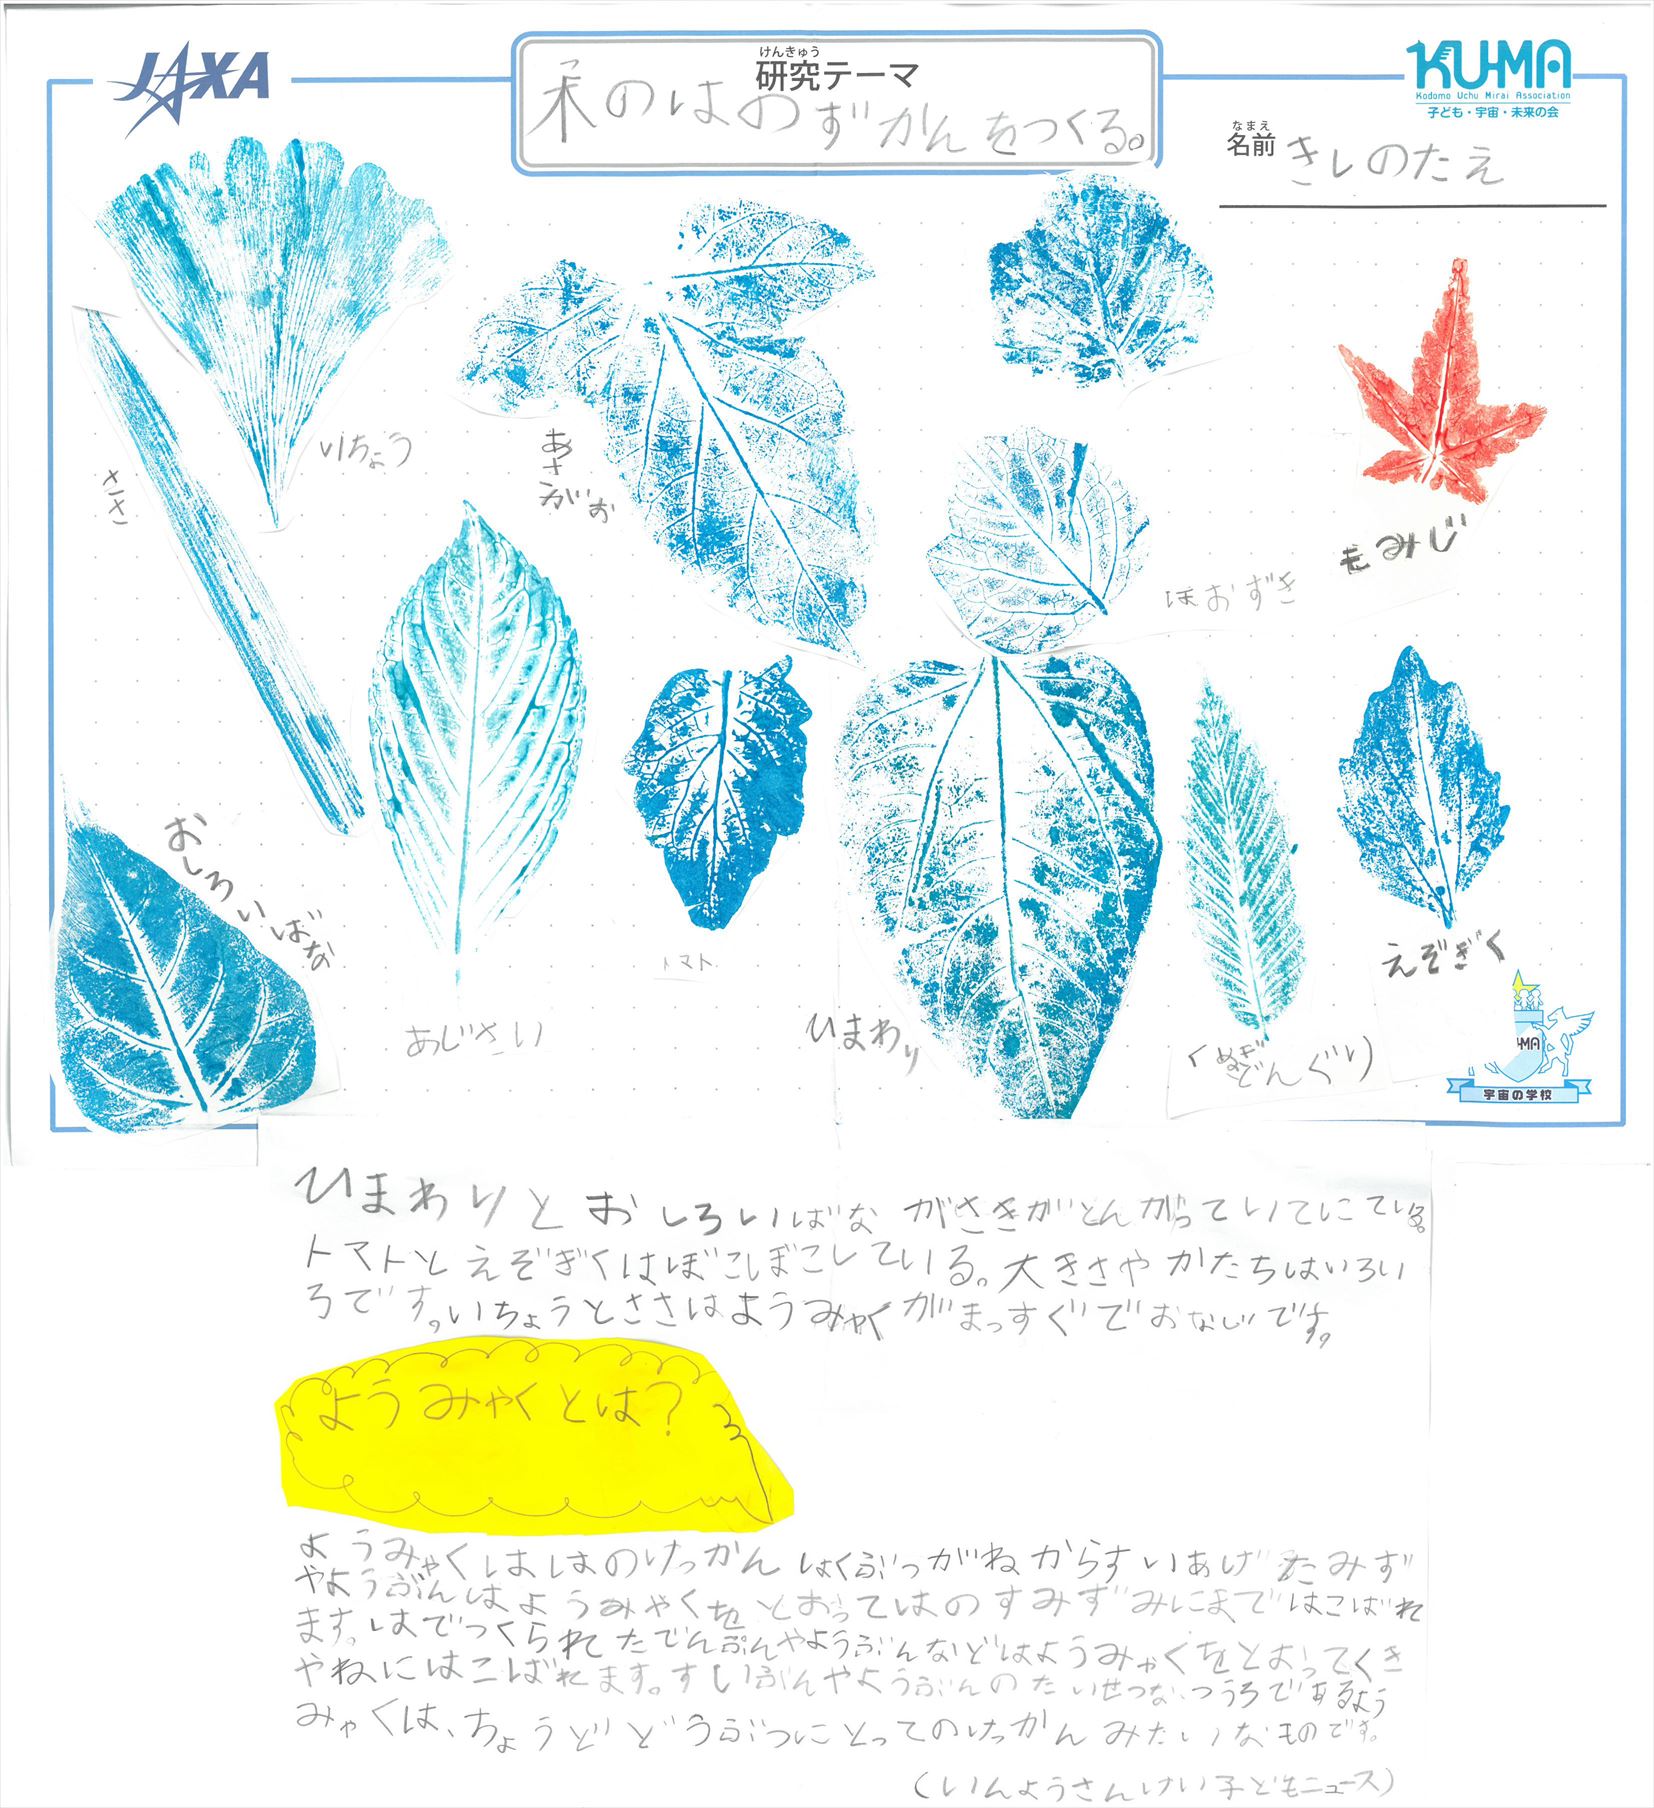 JAXA
けんきゅう
研究テーマ
木のはのずかんをつくる。
KU-MA
Kodomo Uchu Mirai Association
子ども・宇宙・未来の会
なまえ
名前 きしのたえ
いちょう
ささ
あさがお
もみじ
ほおずき
おしろいばな
あじさい
トマト
ひまわり
くぬぎ
どんぐり
えぞぎく
宇宙の学校
ひまわりとおしろいばながさきがとんがっていてにている。
トマトとえぞぎくはぼこぼこしている。大きさやかたちはいろい
ろです。いちょうとささはようみゃくがまっすぐでおなじです。
ようみゃくとは?
ようみゃくははのけっかんしょくぶつがねからすいあげたみず
やようぶんはようみゃくをとおってはのすみずみにまではこばれ
ます。はでつくられたでんぷんやようぶんなどはようみゃくをとおってくき
やねにはこばれます。すいぶんやようぶんのたいせつな、つうろであるよう
みゃくは、ちょうどどうぶつにとってのけっかんみたいなものです。
(いんようさんけい子どもニュース)